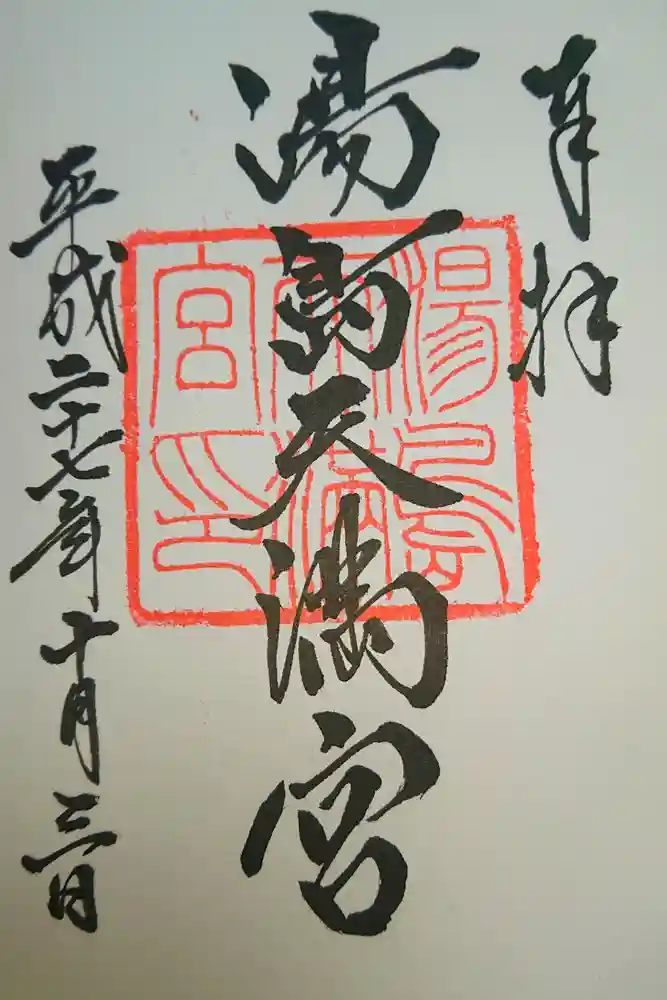 奉拝
湯島天満宮
湯島天満宮印
平成二十七年十月三日